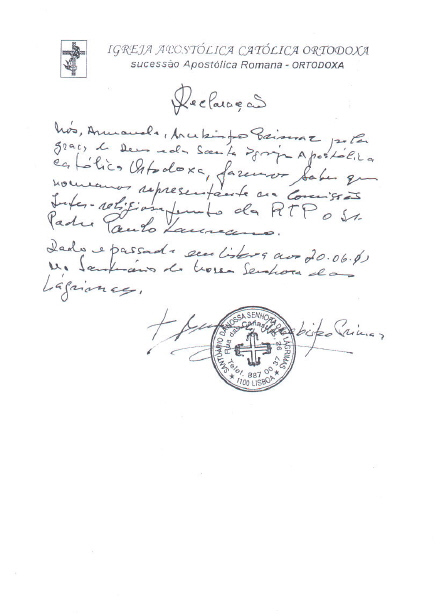 IGREJA APOSTÓLICA CATÓLICA ORTODOXA
sucessão Apostólica Romana - ORTODOXA
Declaração
Nós, Armando, Arcebispo Primaz pela
graça de Deus e da Santa Igreja Apostólica
Católica Ortodoxa, fazemos saber que
nomeamos representante na Comissão
Inter-religiosa junto da RTP o Sr.
Padre Paulo
Dado e passado em Lisboa aos 20.06.
no Santuário de Nossa Senhora das
Lágrimas.
+ Arcebispo Primaz
SANTUÁRIO DA NOSSA SENHORA DAS LÁGRIMAS
Telef. 887 00 37
★ 1100 LISBOA ★